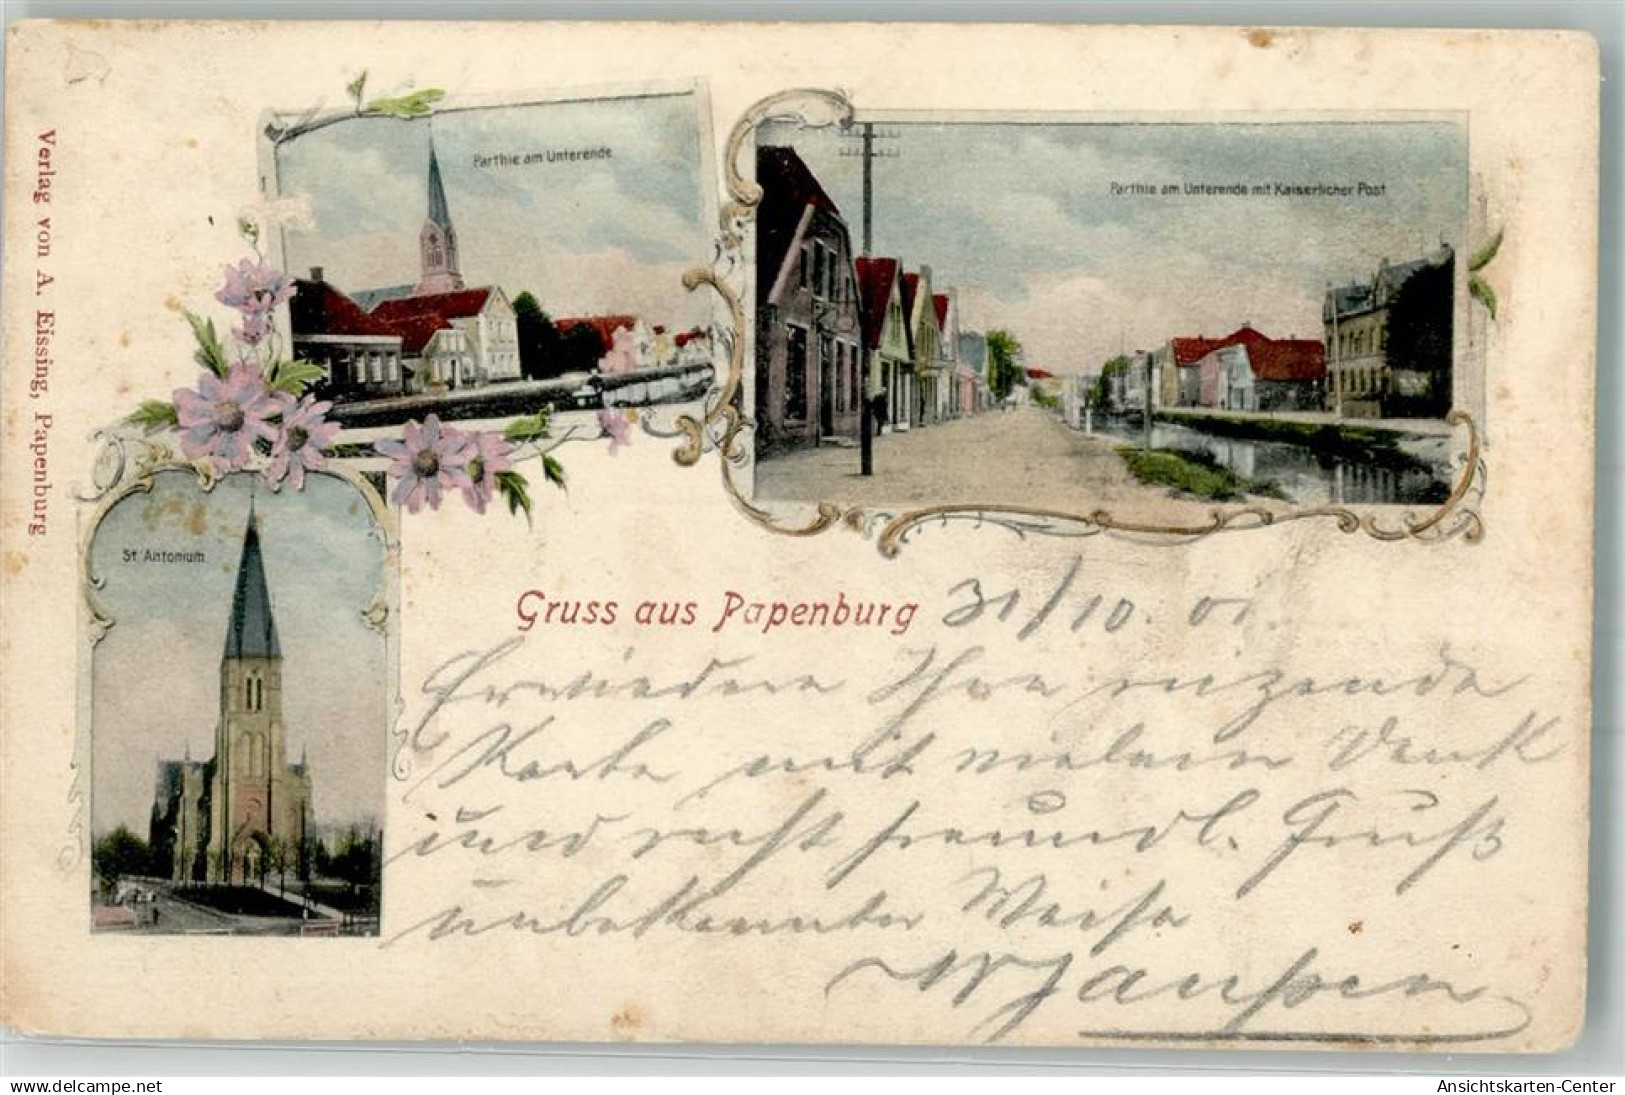 Verlag von A. Eissing, Papenburg
Parthie am Unterende
Parthie am Unterende mit Kaiserlicher Post
St. Antonium.
Gruss aus Papenburg 31/10. 01.
Erwiedere Ihre reizende
Karte mit vielem Dank
und recht freundl. Gruß
unbekannter Weise
Janssen
www.delcampe.net
Ansichtskarten-Center